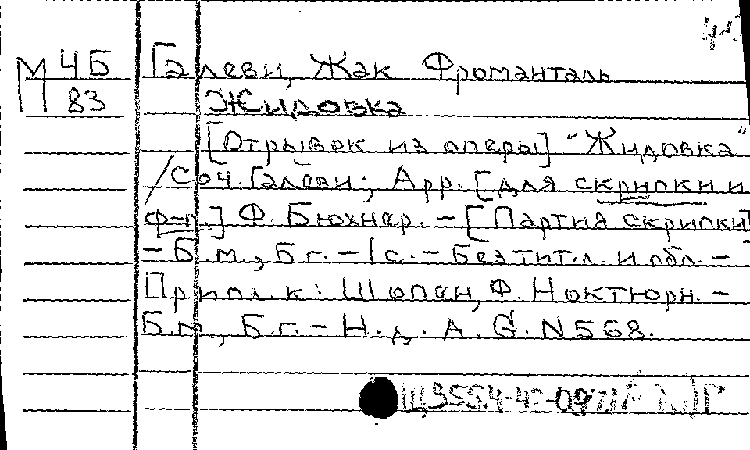 М 4Б Галеви, Жак Фроманталь
П 83 Жидовка
[Отрывок из оперы] "Жидовка"
/Соч. Галеви; Арр. [для скрипки и
ф-п.] Ф. Бюхнер. - [Партия скрипки]
- Б.м., Б.г. - 1с. - Без тит.л. и обл. -
Припл. к: Шопен, Ф. Ноктюрн. -
Б.м., Б.г. - Н.д. A.G.N568.